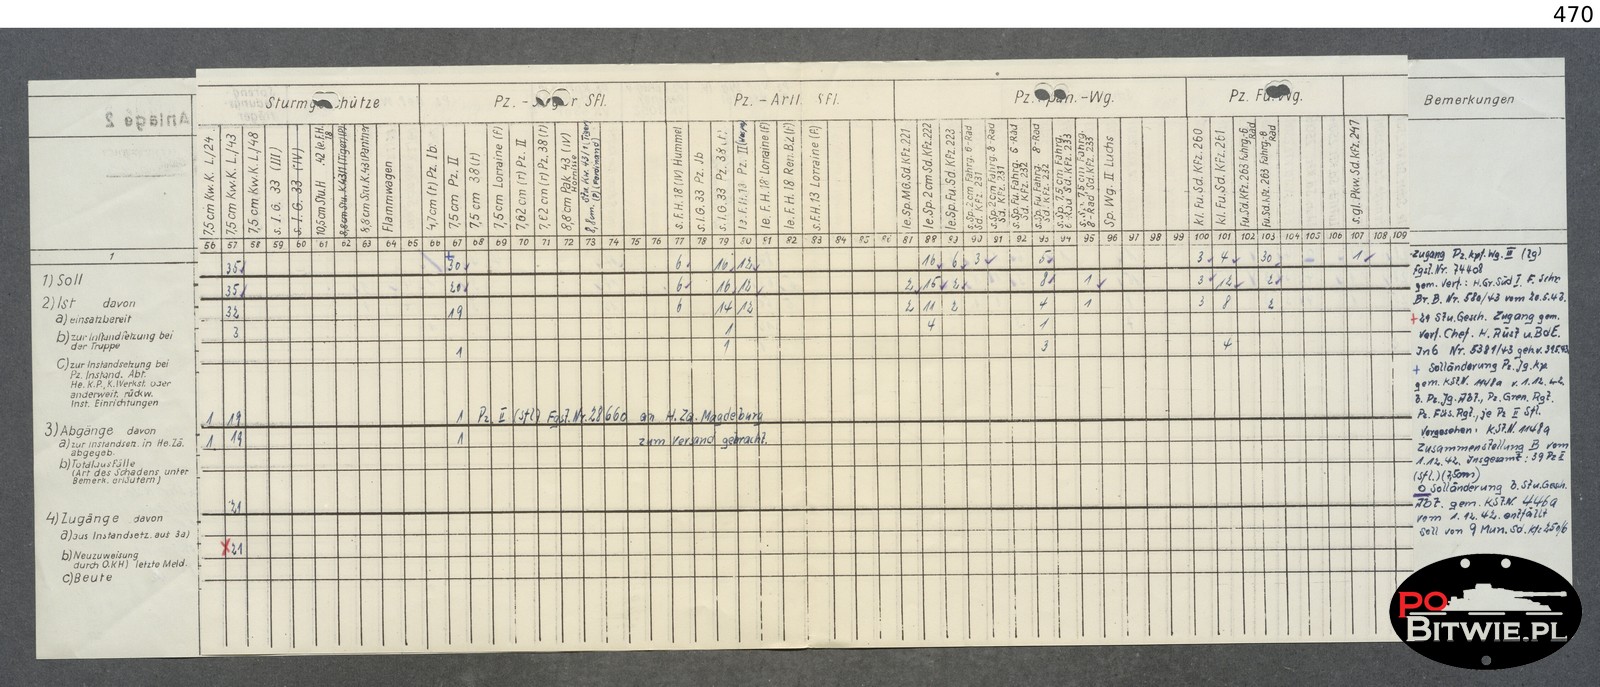 470
Anlage 2
Sturmgeschütze
Pz. - Jäger Sfl.
Pz. - Artl. Sfl.
Pz. Späh. - Wg.
Pz. Fu. Wg.
Bemerkungen
7,5 cm Kw.K. L/24
7,5 cm Kw.K. L/43
7,5 cm Kw.K. L/48
s. I. G. 33 (III)
s. I. G. 33 (IV)
10,5 cm Stu.H. 42 (le.F.H. 18
8,8 cm Stu.K.43 (Tiger) (P)
8,8 cm Stu.K.43 (Panther
Flammwagen
4,7cm (t) Pz. Ib
7,5 cm Pz. II
7,5 cm 38(t)
7,5 cm Lorraine (F)
7,62 cm (r) Pz. II
7,62 cm (r) Pz. 38(t)
8,8 cm Pak 43 (IV) Hornisse
s. F.H. 18 (IV) Hummel
s. I.G. 33 Pz. Ib
s. I.G. 33 Pz. 38 (t)
le. F.H. 18 Pz. II (Wespe)
le. F.H. 18 Lorraine (F)
le. F.H. 18 Ren. B.2 (F)
s. F.H. 13 Lorraine (F)
le. Sp. M.G. Sd. KFz. 221
le. Sp. 2 cm Sd. KFz. 222
le. Sp. Fu. Sd. KFz. 223
s. Sp. 2 cm Fahrg. 6-Rad Sd. KFz. 231
s. Sp. 2 cm Fahrg. 8-Rad Sd. KFz. 231
s. Sp. Fu. Fahrg. 6-Rad Sd. KFz. 232
s. Sp. Fu. Fahrg. 8-Rad Sd. KFz. 232
s. Sp. 7,5 cm Fahrg. 6-Rad Sd. KFz. 233
s. Sp. 7,5 cm Fahrg. 8-Rad Sd. KFz. 233
Sp. Wg. II Luchs
kl. Fu. Sd. KFz. 260
kl. Fu. Sd. KFz. 261
Fu. Sd. KFz. 263 Fahrg. 6 Rad
Fu. Sd. KFz. 263 Fahrg. 8 Rad
z. gl. Pkw. Sd. KFz. 247
1 56 57 58 59 60 61 62 63 64 65 66 67 68 69 70 71 72 73 74 75 76 77 78 79 80 81 82 83 84 85 86 87 88 89 90 91 92 93 94 95 96 97 98 99 100 101 102 103 104 105 106 107 108 109
1) Soll 35 30 6 16 12 16 6 3 5 3 4 30 1
2) Ist davon 35 20 6 16 12 2 15 2 8 1 3 12 2
a) einsatzbereit 32 19 6 14 12 2 11 2 4 1 3 8 2
b) zur Instandsetzung bei der Truppe 3 1 4 1
1 1 3 4
c) zur Instandsetzung bei
Pz. Instand. Abt.
He. K.P., K. Werkst. oder
anderweit. rückw.
Inst. Einrichtungen
3) Abgänge davon 1 19 1 Pz. II (Sfl) Fgst. Nr. 28660 an H. Za. Magdeburg
a) zur Instandsetz. in He. Zä. abgegeb. 1 19 1 zum Versand gebracht.
b) Totalausfälle
(Art des Schadens unter
Bemerk. erläutern)
4) Zugänge davon 21
a) aus Instandsetz. aus 3a)
b) Neuzuweisung x 21
durch O.K.H.) letzte Meld.
c) Beute
Zugang Pz. Kpf. Wg. III (lg)
Fgst. Nr. 74408
gem. Verf.: H. Gr. Süd I. F. Schr.
Br. B. Nr. 580/43 vom 20.5.43.
+ 21 Stu. Gesch. Zugang gem.
Verf. Chef. H. Rüst u. BdE.
+ Solländerung Pz. Jg. Kp
gem. KStN. 1148a v. 1.12.42
d. Pz. Jg. Abt., Pz. Gren. Rgt.
Pz. Füs. Rgt., je Pz II Sfl.
vorgesehen: KStN. 1148a
Zusammenstellung B vom
1.12.42. Insgesamt: 39 Pz II
(Sfl.) (7,5cm)
O Solländerung d. Stu. Gesch.
Abt. gem. KStN. 446a
vom 1.12.42. entfällt
Soll von 9 Mun. Sd. Kfz 250/6
PO
BITWIE.PL